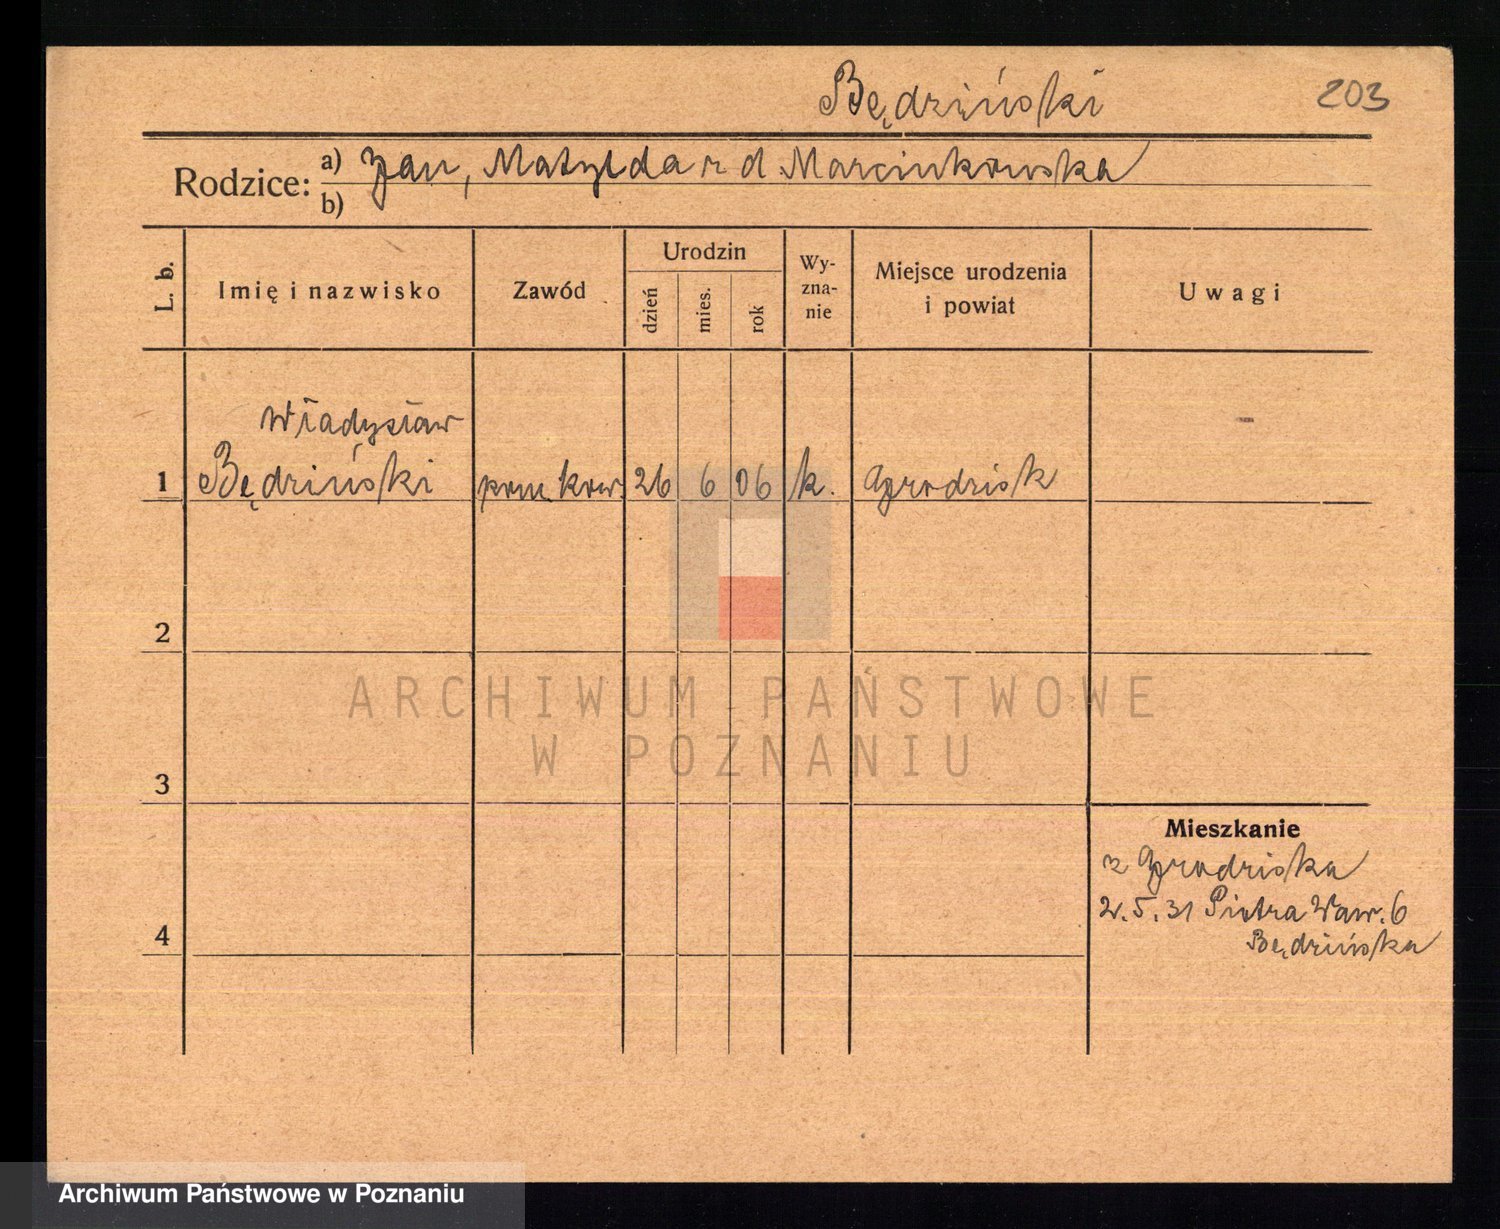 Będziński
203
Rodzice: a) Jan, Matylda z d Marcinkowska
b)
L. b.
Imię i nazwisko
Zawód
Urodzin
dzień
mies.
rok
Wy-
zna-
nie
Miejsce urodzenia
i powiat
Uwagi
Władysław
1 Będziński pom. kow. 26 6 06 k. Grodzisk
2
3
4
Mieszkanie
z Grodziska
2.5.31 Piotra Waw. 6
Będzińska
ARCHIWUM PAŃSTWOWE
W POZNANIU
Archiwum Państwowe w Poznaniu